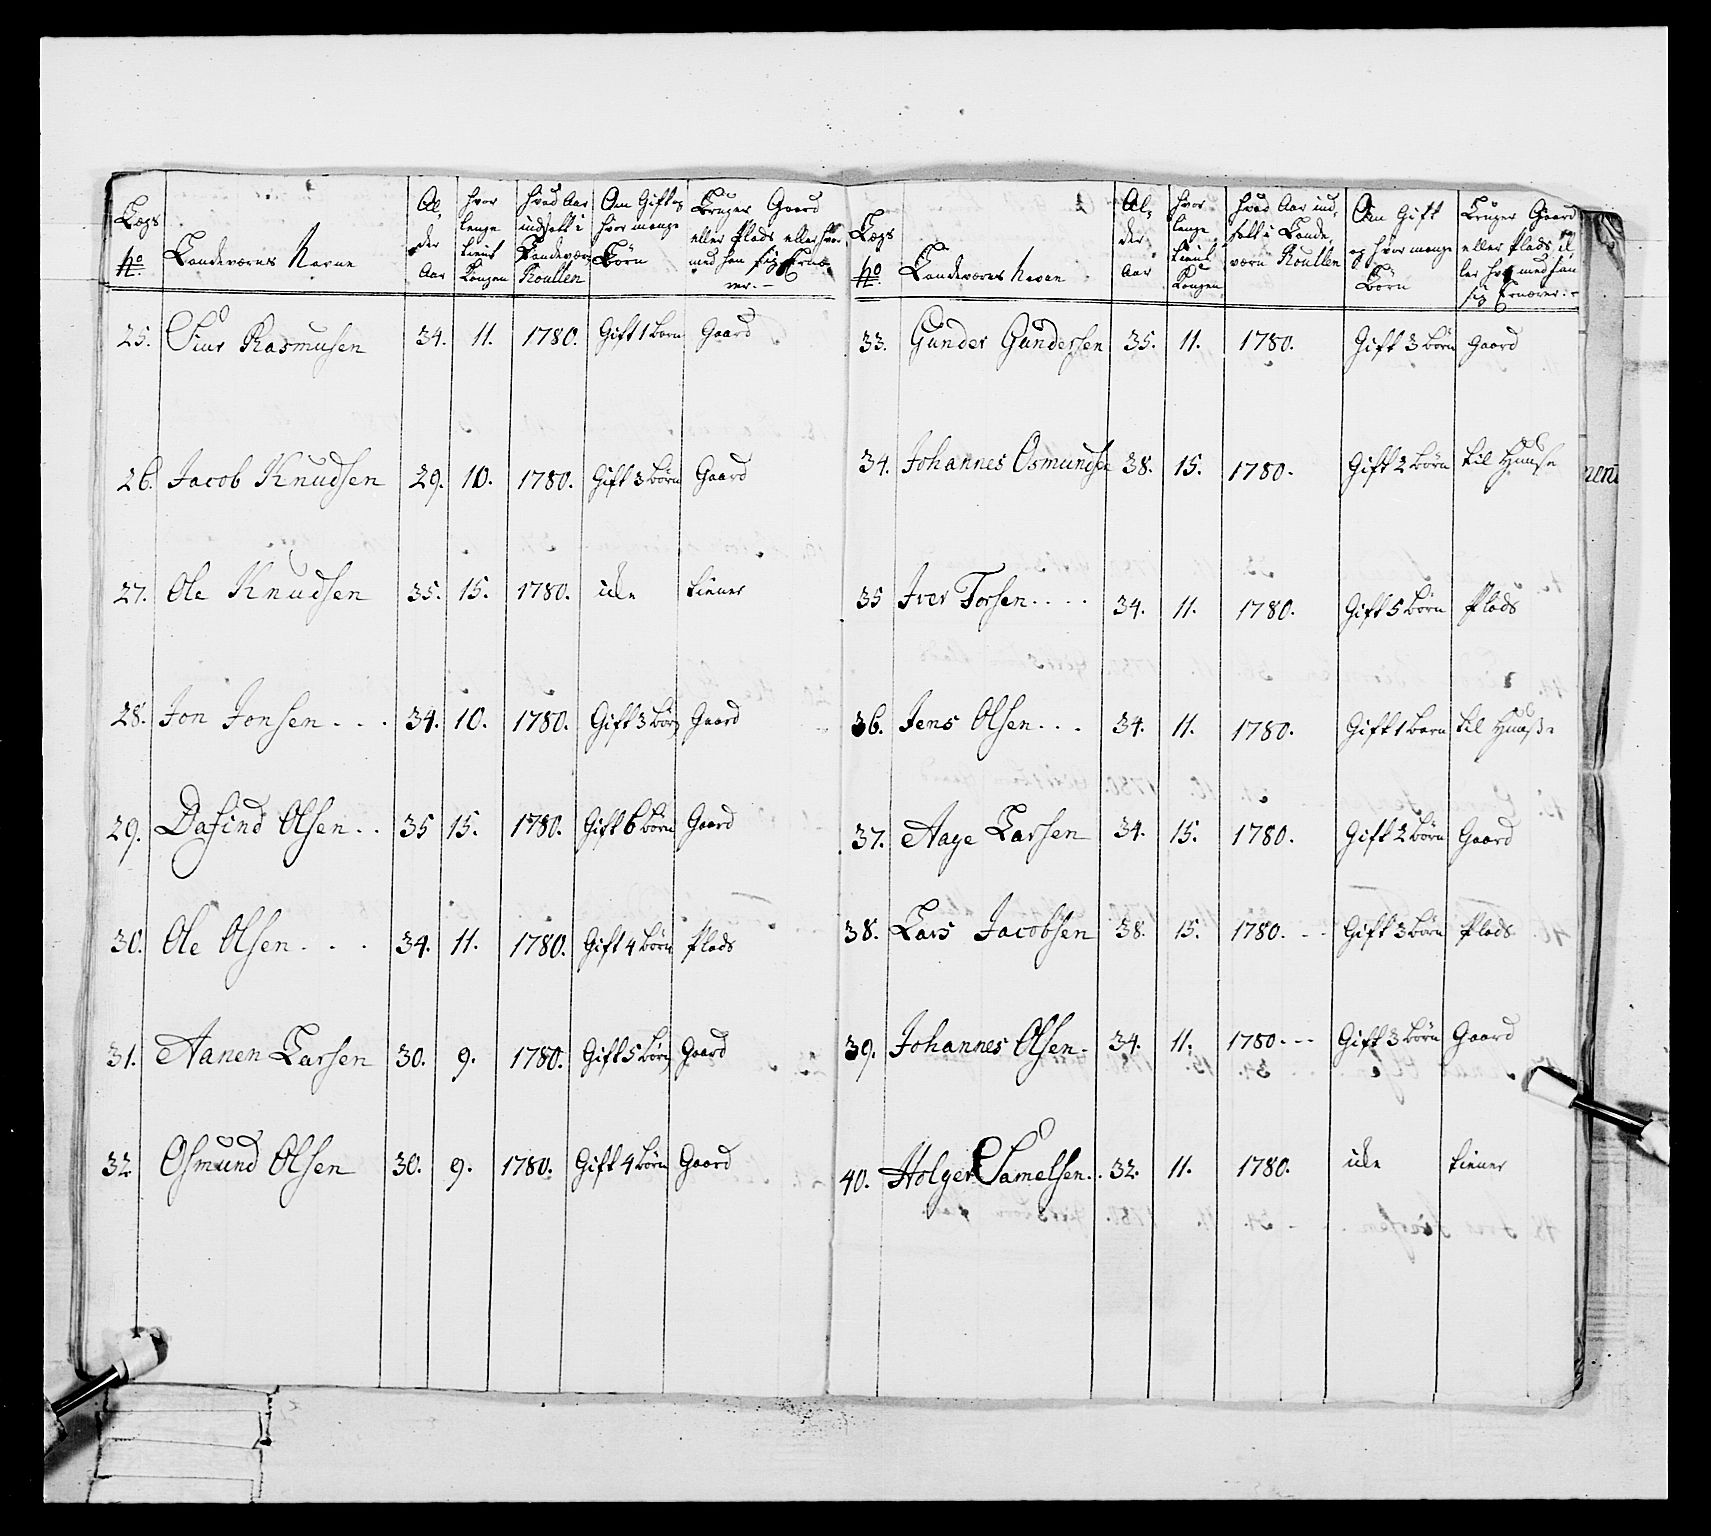 Lægs No | Landeværns Navne | Al, der Aar | hvor lenge tient Kongen | hvad Aar indsatt i Landeværn Roullen | Om Gift og hvor mange Børn | Bruger Gaard eller Plads eller hvor med han sig Ernærer.-
25. Siur Rasmusen 34. 11. 1780. Gift 1 barn Gaard
26. Jacob Knudsen 29. 10. 1780. Gift 3 børn Gaard
27. Ole Knudsen 35. 15. 1780. icke tiener
28. Jon Jonsen . . . 34. 10. 1780. Gift 3 børn Gaard
29. Dafind Olsen . . 35 15. 1780. Gift 6 børn Gaard
30. Ole Olsen . . . 34. 11. 1780. Gift 4 børn Plads
31. Aanen Larsen 30. 9. 1780. Gift 5 børn Gaard
32 Osmund Olsen 30. 9. 1780. Gift 4 børn Gaard
Lægs No. | Landeværns Naven | Al, der Aar | hvor lenge tient Kongen | hvad Aar ind, satt i Lande, værn Roullen | Om Gift og hvor mange Børn | Bruger Gaard eller Plads el ler hvor med han sig Ernærer:-
33. Gunder Gundersen 35. 11. 1780. Gift 3 børn Gaard
34. Johannes Osmundse 38. 15. 1780. Gift 2 børn til Huuse
35 Iver Torsen . . . . 34. 11. 1780. Gift 5 børn Plads
36. Jens Olsen . . . 34. 11. 1780. Gift 1 barn til Huuse
37. Aage Larsen 34. 15. 1780. Gift 2 børn Gaard
38. Lars Jacobsen 38. 15. 1780. - - Gift 3 børn Plads
39. Johannes Olsen. 34. 11. 1780. - - Gift 3 børn Gaard
40. Holger Samelsen. . 32. 11. 1780. icke tiener